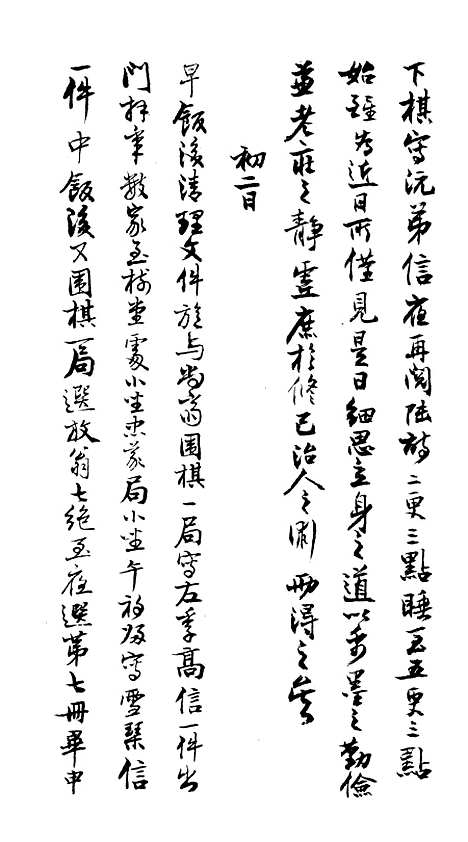 下棋寫沅弟信夜再閱陆詩二更三點睡至五更三點
始醒為近日所僅見是日細思立身之道以禹墨之勤儉
兼老莊之靜虛庶於修己治人之術兩得之矣
初二日
早飯後清理文件旋与尚斋围棋一局寫左季高信一件出
門拜年數家至樹堂處小坐忠義局小坐午初歸寫雪琴信
一件中飯後又围棋一局選放翁七絕至夜選第七冊畢申